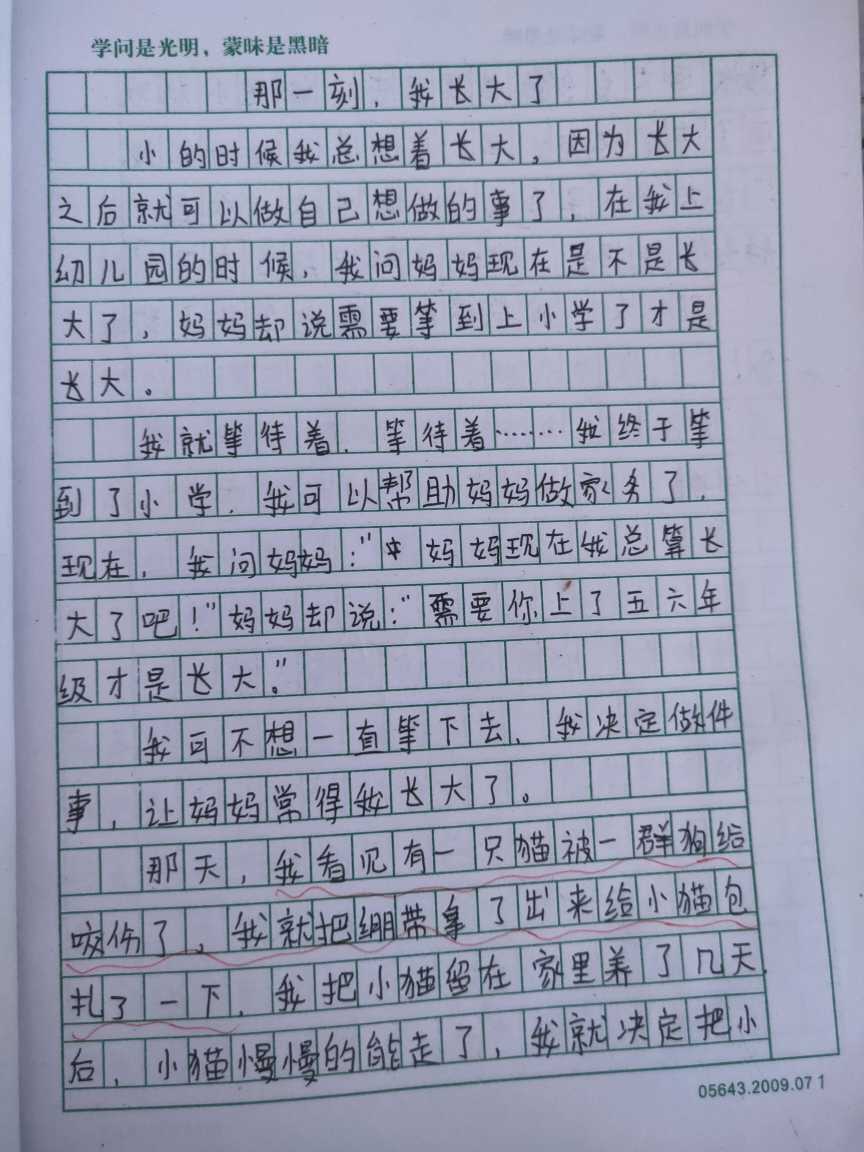 学问是光明，蒙昧是黑暗
那一刻，我长大了
小的时候我总想着长大，因为长大
之后就可以做自己想做的事了，在我上
幼儿园的时候，我问妈妈现在是不是长
大了，妈妈却说需要等到上小学了才是
长大。
我就等待着，等待着………我终于等
到了小学，我可以帮助妈妈做家务了，
现在，我问妈妈："妈妈现在我总算长
大了吧！"妈妈却说："需要你上了五六年
级才是长大。"
我可不想一直等下去，我决定做件
事，让妈妈常得我长大了。
那天，我看见有一只猫被一群狗给
咬伤了，我就把绷带拿了出来给小猫包
扎了一下，我把小猫留在家里养了几天
后，小猫慢慢的能走了，我就决定把小
05643.2009.07 1